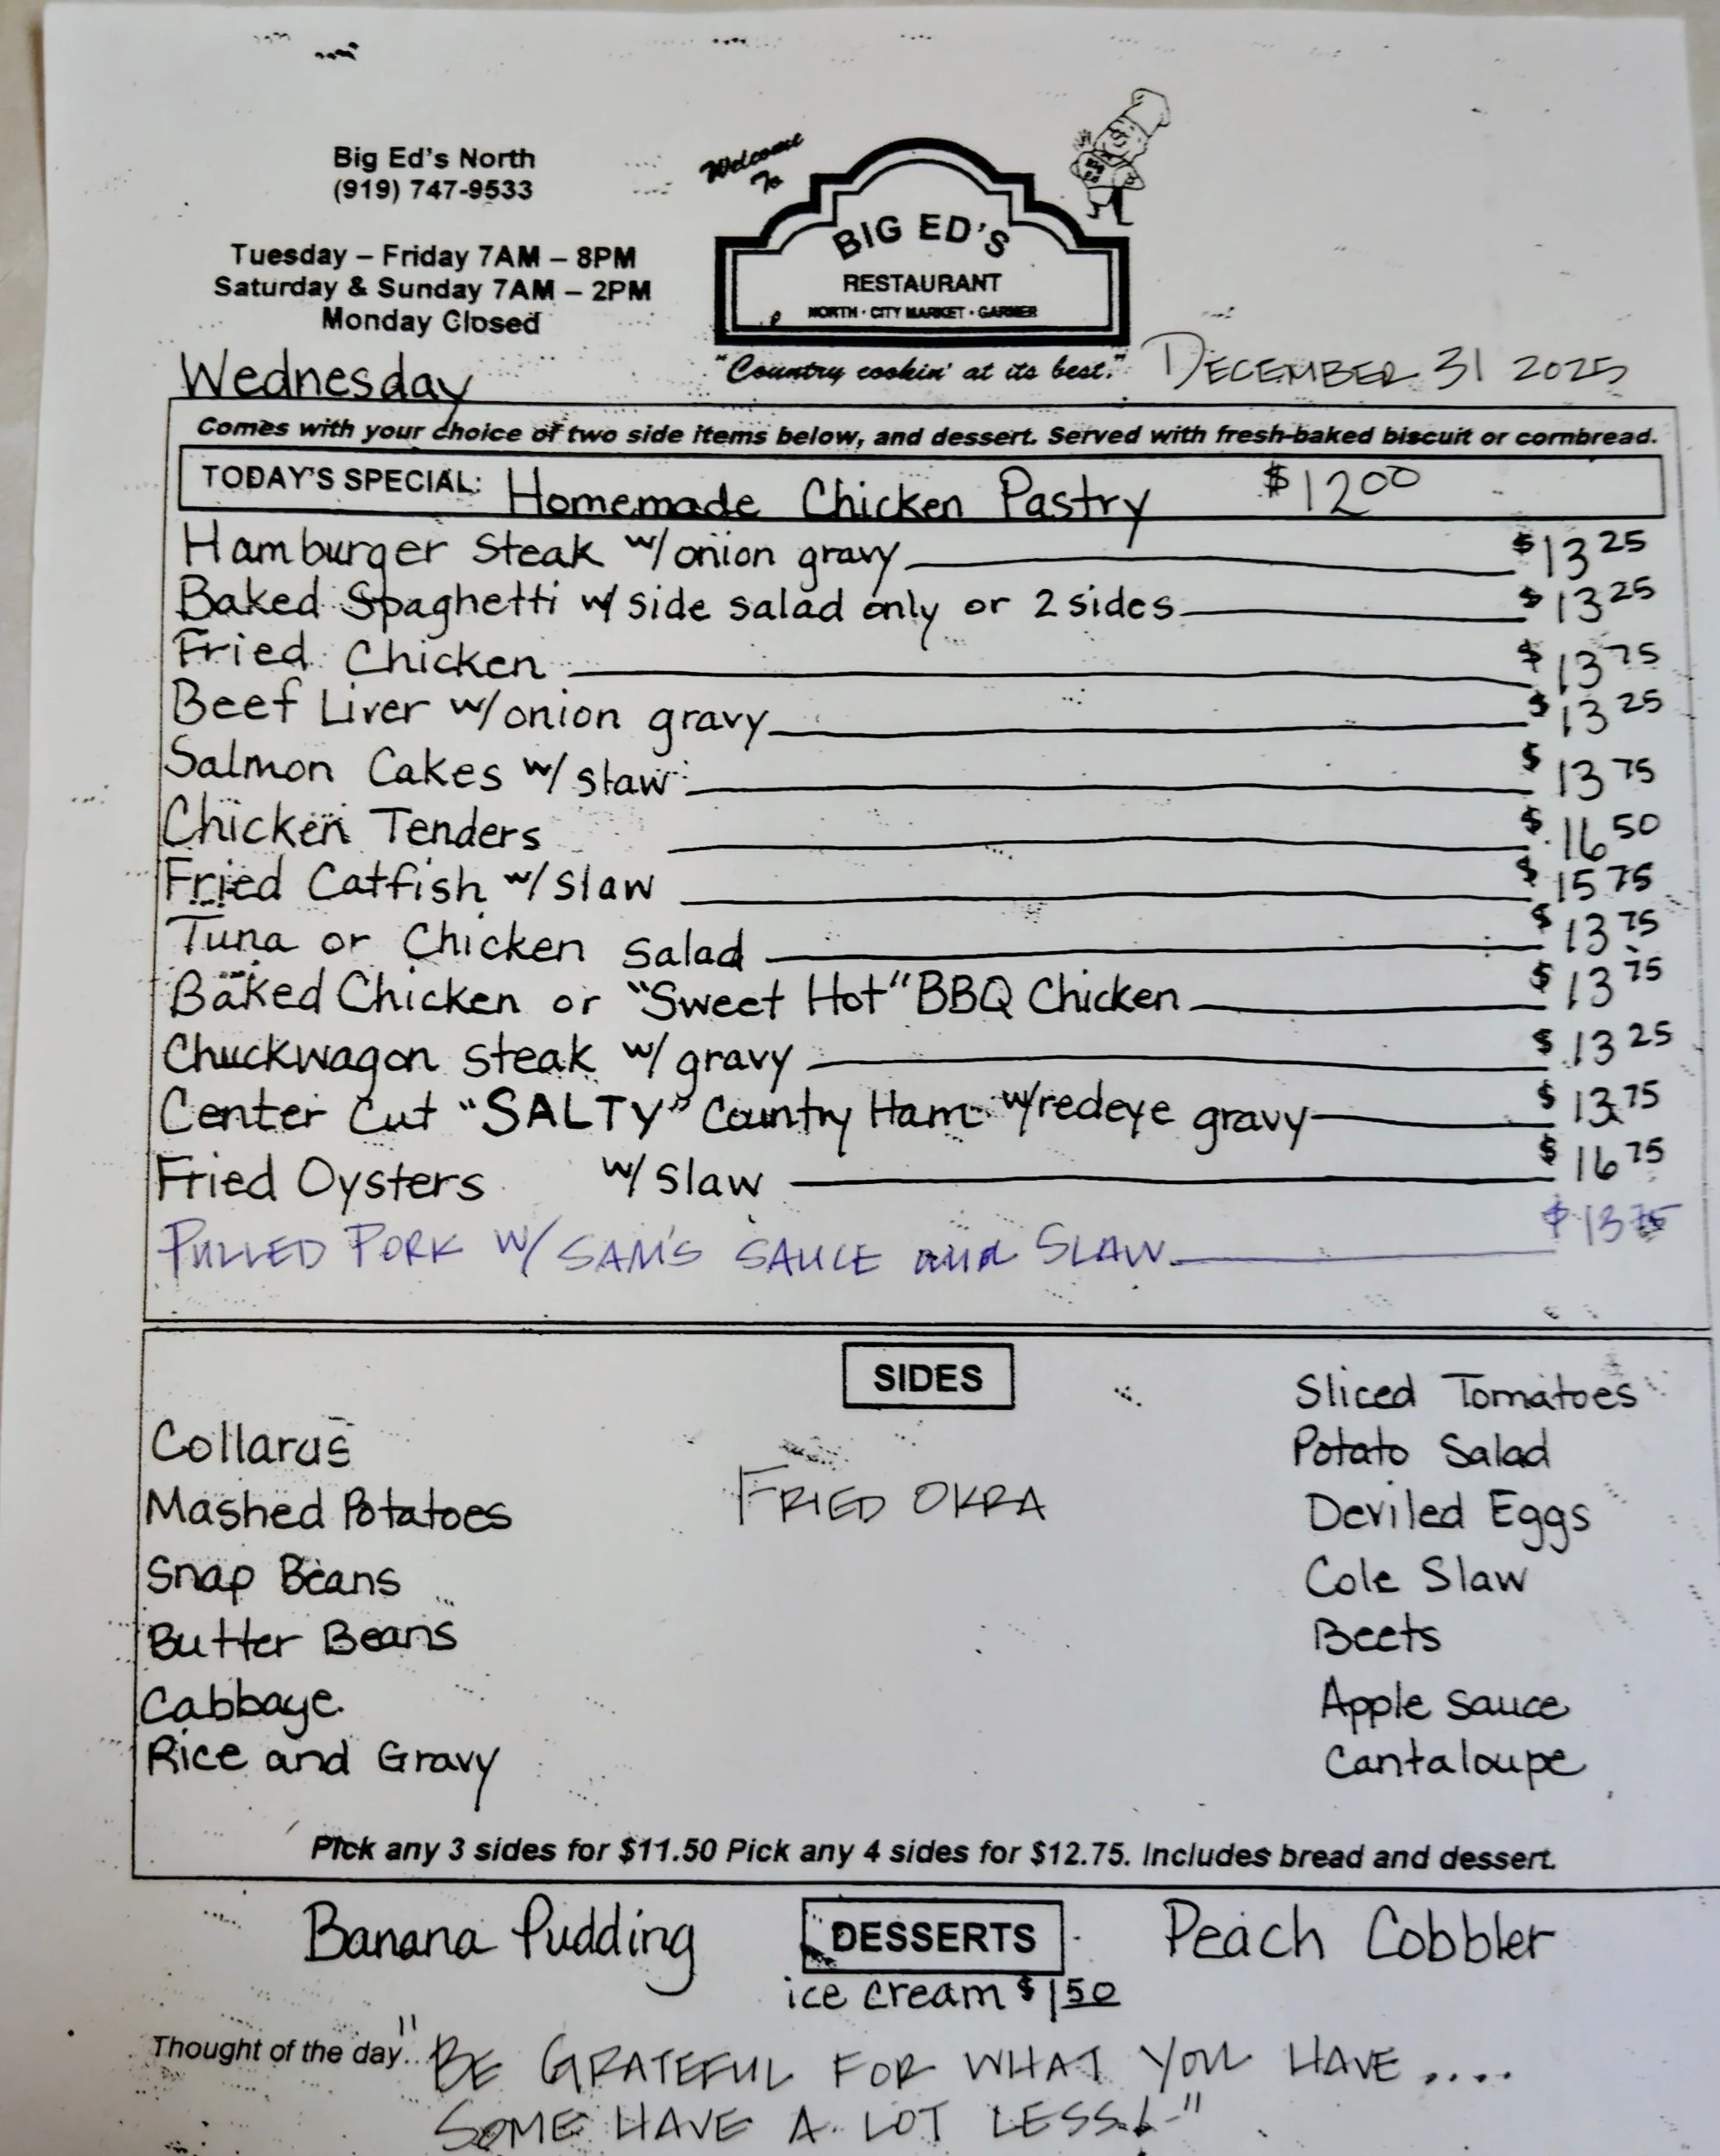 Big Ed's North
(919) 747-9533
Tuesday – Friday 7AM – 8PM
Saturday & Sunday 7AM – 2PM
Monday Closed
Welcome
To
BIG ED'S
RESTAURANT
NORTH · CITY MARKET · GARNER
"Country cookin' at its best."
Wednesday
DECEMBER 31 2025
Comes with your choice of two side items below, and dessert. Served with fresh-baked biscuit or cornbread.
TODAY'S SPECIAL: Homemade Chicken Pastry $12 00
Hamburger Steak w/ onion gravy $13 25
Baked Spaghetti w/ side salad only or 2 sides $13 25
Fried Chicken $13 75
Beef Liver w/ onion gravy $13 25
Salmon Cakes w/ slaw $13 75
Chicken Tenders $16 50
Fried Catfish w/ slaw $15 75
Tuna or Chicken Salad $13 75
Baked Chicken or "Sweet Hot" BBQ Chicken $13 75
Chuckwagon Steak w/ gravy $13 25
Center Cut "SALTY" Country Ham w/redeye gravy $13 75
Fried Oysters w/ slaw $16 75
PULLED PORK W/ SAM'S SAUCE and SLAW $13 75
SIDES
Collards
Mashed Potatoes
Snap Beans
Butter Beans
Cabbage
Rice and Gravy
FRIED OKRA
Sliced Tomatoes
Potato Salad
Deviled Eggs
Cole Slaw
Beets
Apple Sauce
Cantaloupe
Pick any 3 sides for $11.50 Pick any 4 sides for $12.75. Includes bread and dessert.
Banana Pudding
DESSERTS
Peach Cobbler
ice cream $1 50
Thought of the day.. "BE GRATEFUL FOR WHAT YOU HAVE....
SOME HAVE A LOT LESS!"